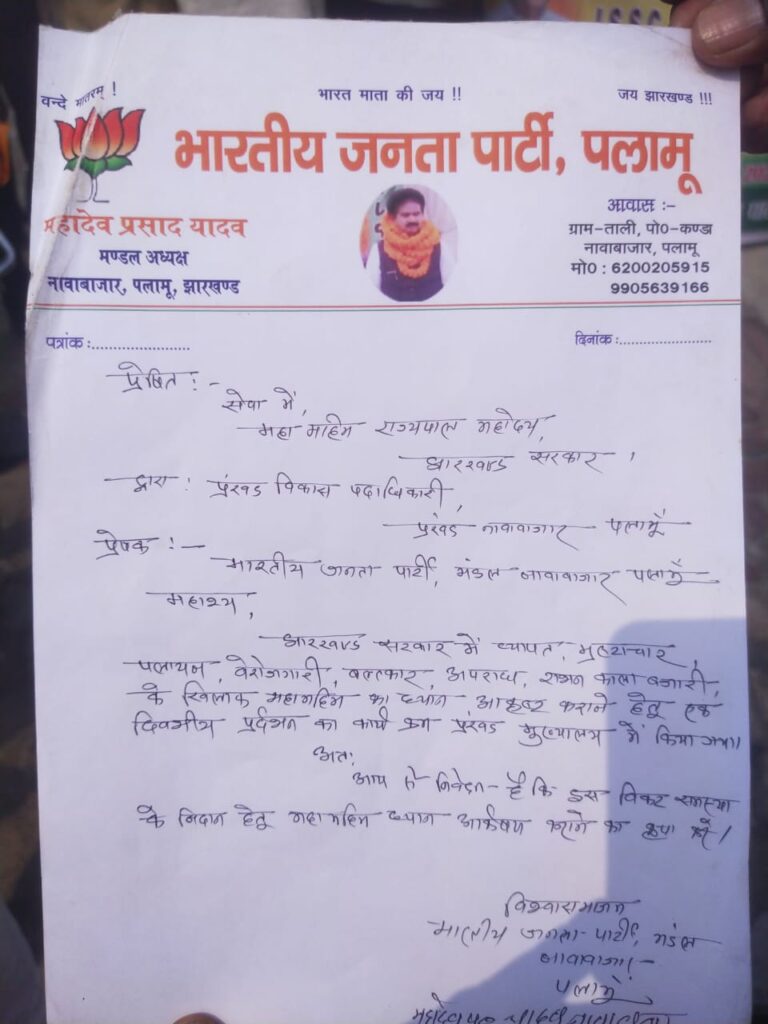 वन्दे मातरम् !
भारत माता की जय !!
जय झारखण्ड !!!
भारतीय जनता पार्टी, पलामू
महादेव प्रसाद यादव
मण्डल अध्यक्ष
नावाबाजार, पलामू, झारखण्ड
आवास :-
ग्राम-ताली, पो०-कण्डा
नावाबाजार, पलामू
मो0 : 6200205915
9905639166
पत्रांक :......................
दिनांक :......................
प्रेषित :-
सेवा में,
महा महिम राज्यपाल महोदय,
झारखण्ड सरकार ।
द्वारा : प्रंखड विकास पदाधिकारी,
प्रंखड नावाबाजार पलामूँ
प्रेषक :-
भारतीय जनता पार्टी, मंडल नावाबाजार पलामूँ
महाश्य,
झारखण्ड सरकार में व्यापत, भ्रष्टाचार,
पलायन, बेरोजगारी, बलत्कार, अपराध, राशन काला बजारी,
के खिलाफ महामहिम का ध्यान आकृष्ट कराने हेतू एक
दिवसीय प्रर्दशन का कार्य क्रम प्रंखड मुख्यालय में किया गया।
अतः
आप से निवेदन है कि इस विकट समस्या
के निदान हेतू महामहिम ध्यान आर्कषण कराने का कृपा करें।
विश्वासभाजन
भारतीय जनता पार्टी, मंडल
नावाबाजार
पलामूँ